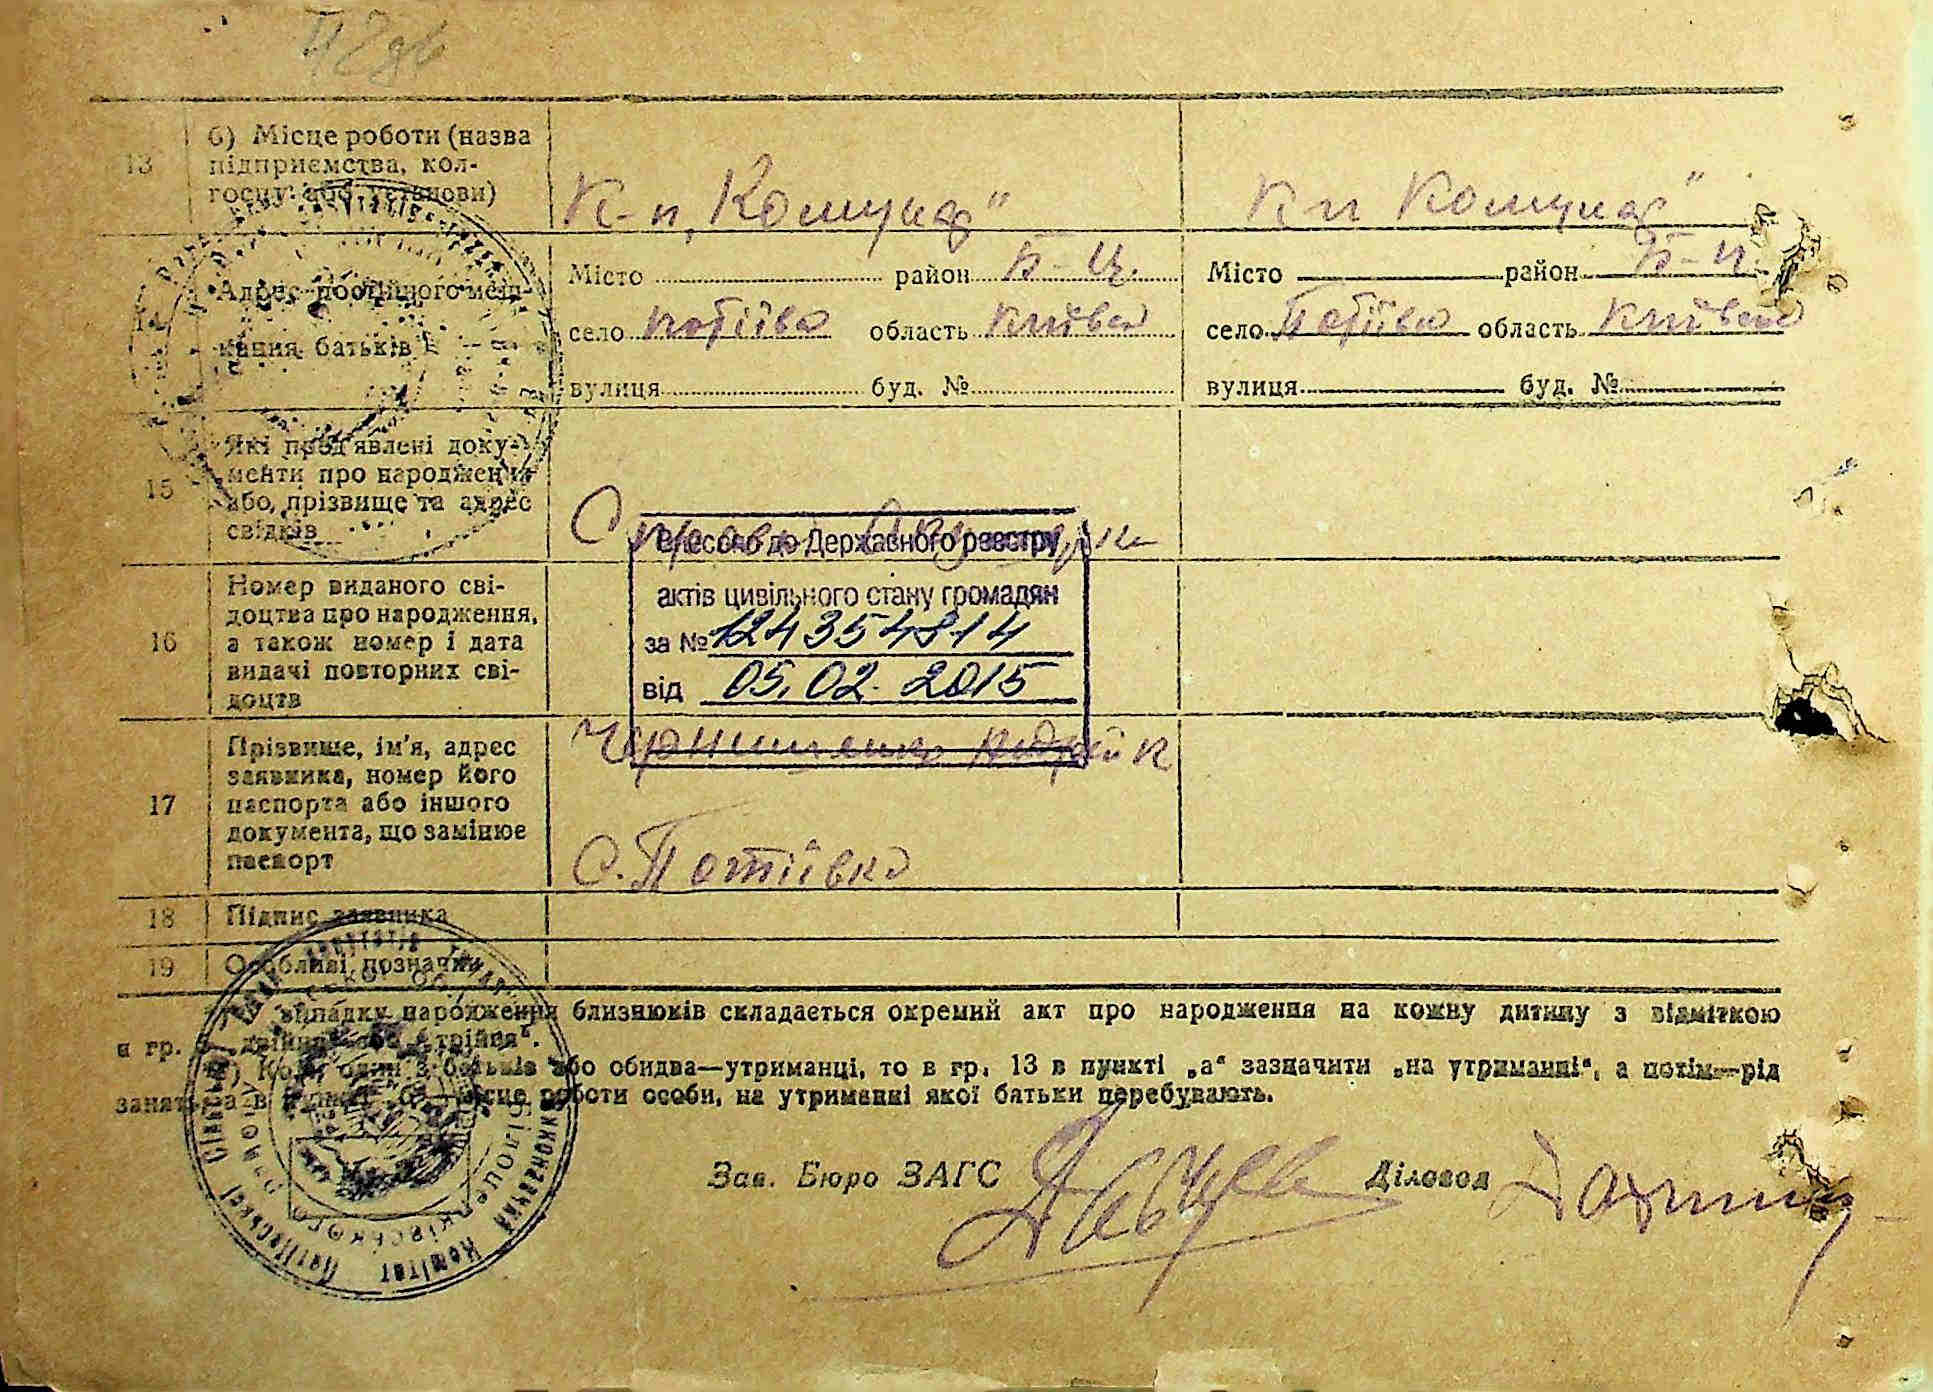 13
б) Місце роботи (назва
підприємства, кол-
госпу або установи)
К-п „Комунар“
К-п Комунар“
14
Адрес постійного меш-
кання батьків
Місто район Б-Ц.
село Потіївка область Київськ
вулиця буд. №
Місто район Б-Ц.
село Потіївка область Київськ
вулиця буд. №
15
Які пред'явлені доку-
менти про народження
або, прізвище та адрес
свідків
Справка
16
Номер виданого сві-
доцтва про народження,
а також номер і дата
видачі повторних сві-
доцтв
Внесено до Державного реєстру
актів цивільного стану громадян
за № 124354814
від 05.02.2015
17
Прізвише, ім'я, адрес
заявника, номер його
паспорта або іншого
документа, що замінює
паспорт
Чернишенко Андрій К
с. Потіївка
18
Підпис заявника
19
Особливі позначки
випадку народження близнюків складається окремий акт про народження на кожну дитину з відміткою
в гр. „двійня“ або „трійня“.
Коли один з батьків або обидва—утриманці, то в гр. 13 в пункті „а“ зазначити „на утриманні“, а потім—рід
занять, а в пункті „б“ місце роботи особи, на утриманні якої батьки перебувають.
Зав. Бюро ЗАГС
Діловод
Виконавчий Комітет
Білоцерківського району